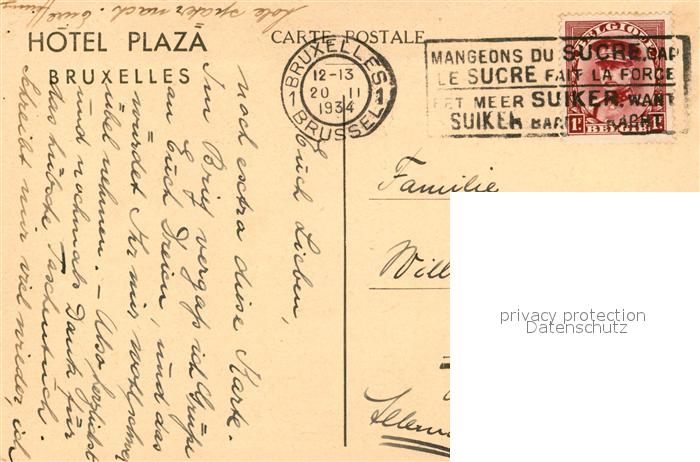 HÔTEL PLAZA
BRUXELLES
CARTE POSTALE
BRUXELLES
1 1
12-13
20 II
1934
BRUSSEL
MANGEONS DU SUCRE, CAR
LE SUCRE FAIT LA FORCE
EET MEER SUIKER, WANT
SUIKER BAART KRACHT
BELGIQUE
1F 1F
BELGIË
Euch Lieben,
noch extra diese Karte.
Im Brief vergaß ich Grüße
an Euch Dreien, und das
würdet Ihr mir wohl schwer
übel nehmen. – Also herzlichst
und nochmals Dank für
das hübsche Taschentuch.
Schreibt mir viel wieder, ich
später nach. Eure
Familie
Will
privacy protection
Datenschutz